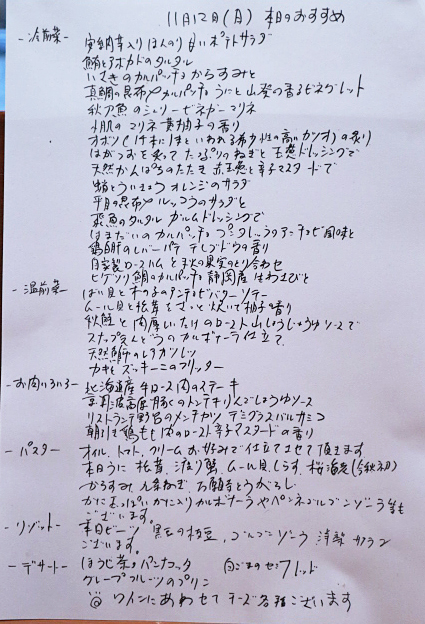 11月12日(月) 本日のおすすめ
-冷前菜-
安納芋入りほんのり甘いポテトサラダ
鮪とアボカドのタルタル
いさきのカルパッチョからすみと
真鯛の昆布〆カルパッチョうにと山葵の香るビネグレット
秋刀魚のシェリービネガーマリネ
のマリネ 黄柚子の香り
はがつおを炙って たっぷりのねぎと玉葱ドレッシングで
天然かんぱちのたたき 赤玉葱と辛子マスタードで
蛸とういきょう オレンジのサラダ
平目の昆布〆 ルッコラのサラダと
飛魚のタルタル ガルムドレッシングで
はまだいのカルパッチョ プンタレッラのアンチョビ風味と
鶏白肝のレバーパテ 干しブドウの香り
自家製ロースハムと秋の果実のとり合わせ
ヒゲソリ鯛のカルパッチョ 静岡産生わさびと
-温前菜-
ばい貝ときのこのアンチョビバターソテー
ムール貝と松茸をさっと炊いて柚子の香り
秋鮭と肉厚しいたけのロースト山しょうじょうゆソースで
スナップえんどうのカルボナーラ仕立て
天然のレアカツレツ
カキとズッキーニのフリッター
-お肉いろいろ-
北海道産牛ロース肉のステーキ
京丹波高原豚のトンテキりんごしょうゆソース
リストランテ野呂のメンチカツ デミグラスバルサミコ
朝引き鶏もも肉のロースト辛子マスタードの香り
-パスタ-
オイル、トマト、クリームお好みで仕立てさせて頂きます
本日うに 松茸、渡り蟹、ムール貝、しらす、桜海老(今秋初)
からすみ、九条ねぎ、万願寺とうがらし
かに入りカルボナーラやペンネゴルゴンゾーラ等も
ございます。
-リゾット-
本日ビーツ 黒豆の枝豆、ゴルゴンゾーラ
ございます。
-デザート-
ほうじ茶のパンナコッタ 白ごまのセミフレッド
グレープフルーツのプリン
◎ワインにあわせてチーズ各種ございます